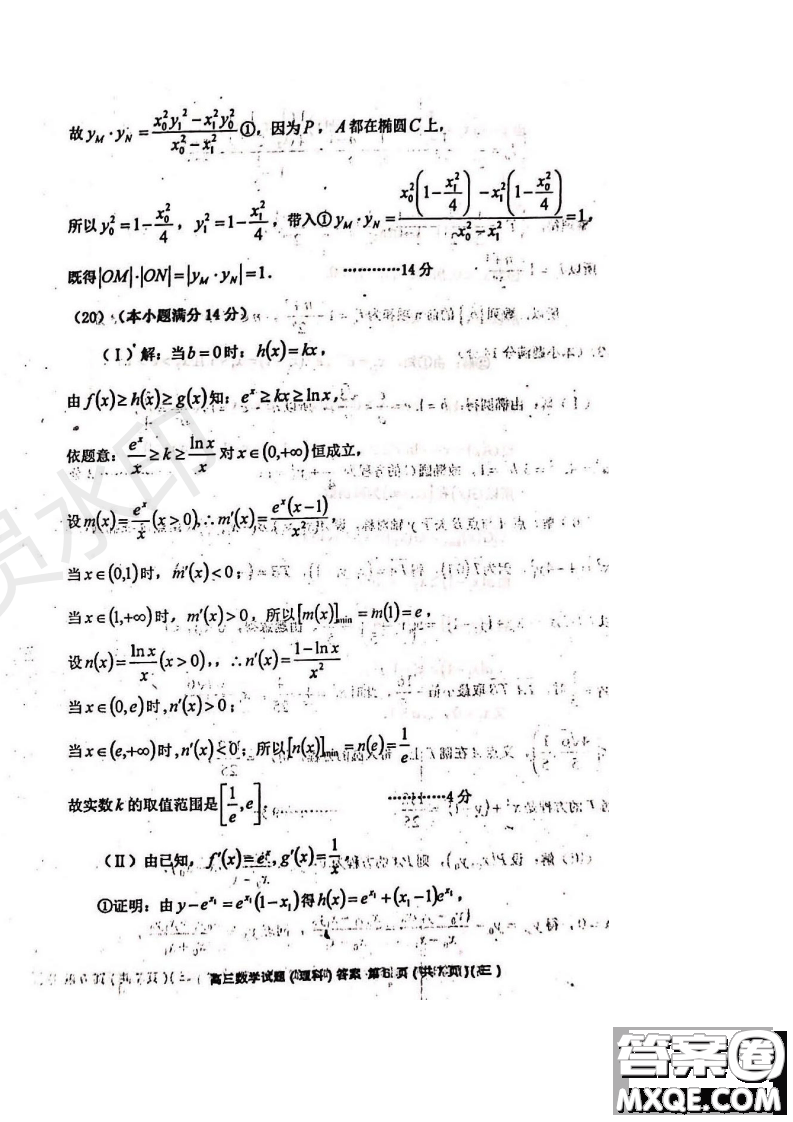 故 y_M · y_N = (x_0^2 y_1^2 − x_1^2 y_0^2) / (x_0^2 − x_1^2) ①, 因为 P, A 都在椭圆 C 上,
所以 y_0^2 = 1 − x_0^2/4, y_1^2 = 1 − x_1^2/4, 带入① y_M · y_N = [x_0^2(1 − x_1^2/4) − x_1^2(1 − x_0^2/4)] / (x_0^2 − x_1^2) = 1,
既得|OM|·|ON| = |y_M · y_N| = 1. …………14分
(20) (本小题满分14分)
(Ⅰ) 解: 当 b = 0 时: h(x) = kx,
由 f(x) ≥ h(x) ≥ g(x) 知: e^x ≥ kx ≥ ln x,
依题意: e^x/x ≥ k ≥ ln x/x 对 x ∈ (0,+∞) 恒成立,
设 m(x) = e^x/x (x > 0), ∴ m′(x) = e^x(x−1)/x^2,
当 x ∈ (0,1) 时, m′(x) < 0;
当 x ∈ (1,+∞) 时, m′(x) > 0, 所以 [m(x)]_min = m(1) = e,
设 n(x) = ln x/x (x > 0),, ∴ n′(x) = (1 − ln x)/x^2
当 x ∈ (0,e) 时, n′(x) > 0;
当 x ∈ (e,+∞) 时, n′(x) < 0; 所以 [n(x)]_min = n(e) = 1/e
故实数 k 的取值范围是 [1/e, e]. …………4分
(Ⅱ) 由已知, f′(x) = e^x, g′(x) = 1/x
①证明: 由 y − e^{x_1} = e^{x_1}(1 − x_1) 得 h(x) = e^{x_1} + (x_1 − 1)e^{x_1},
高三数学试题 (理科) 答案 第 页 (共 页)
答案圈
MXQE.COM